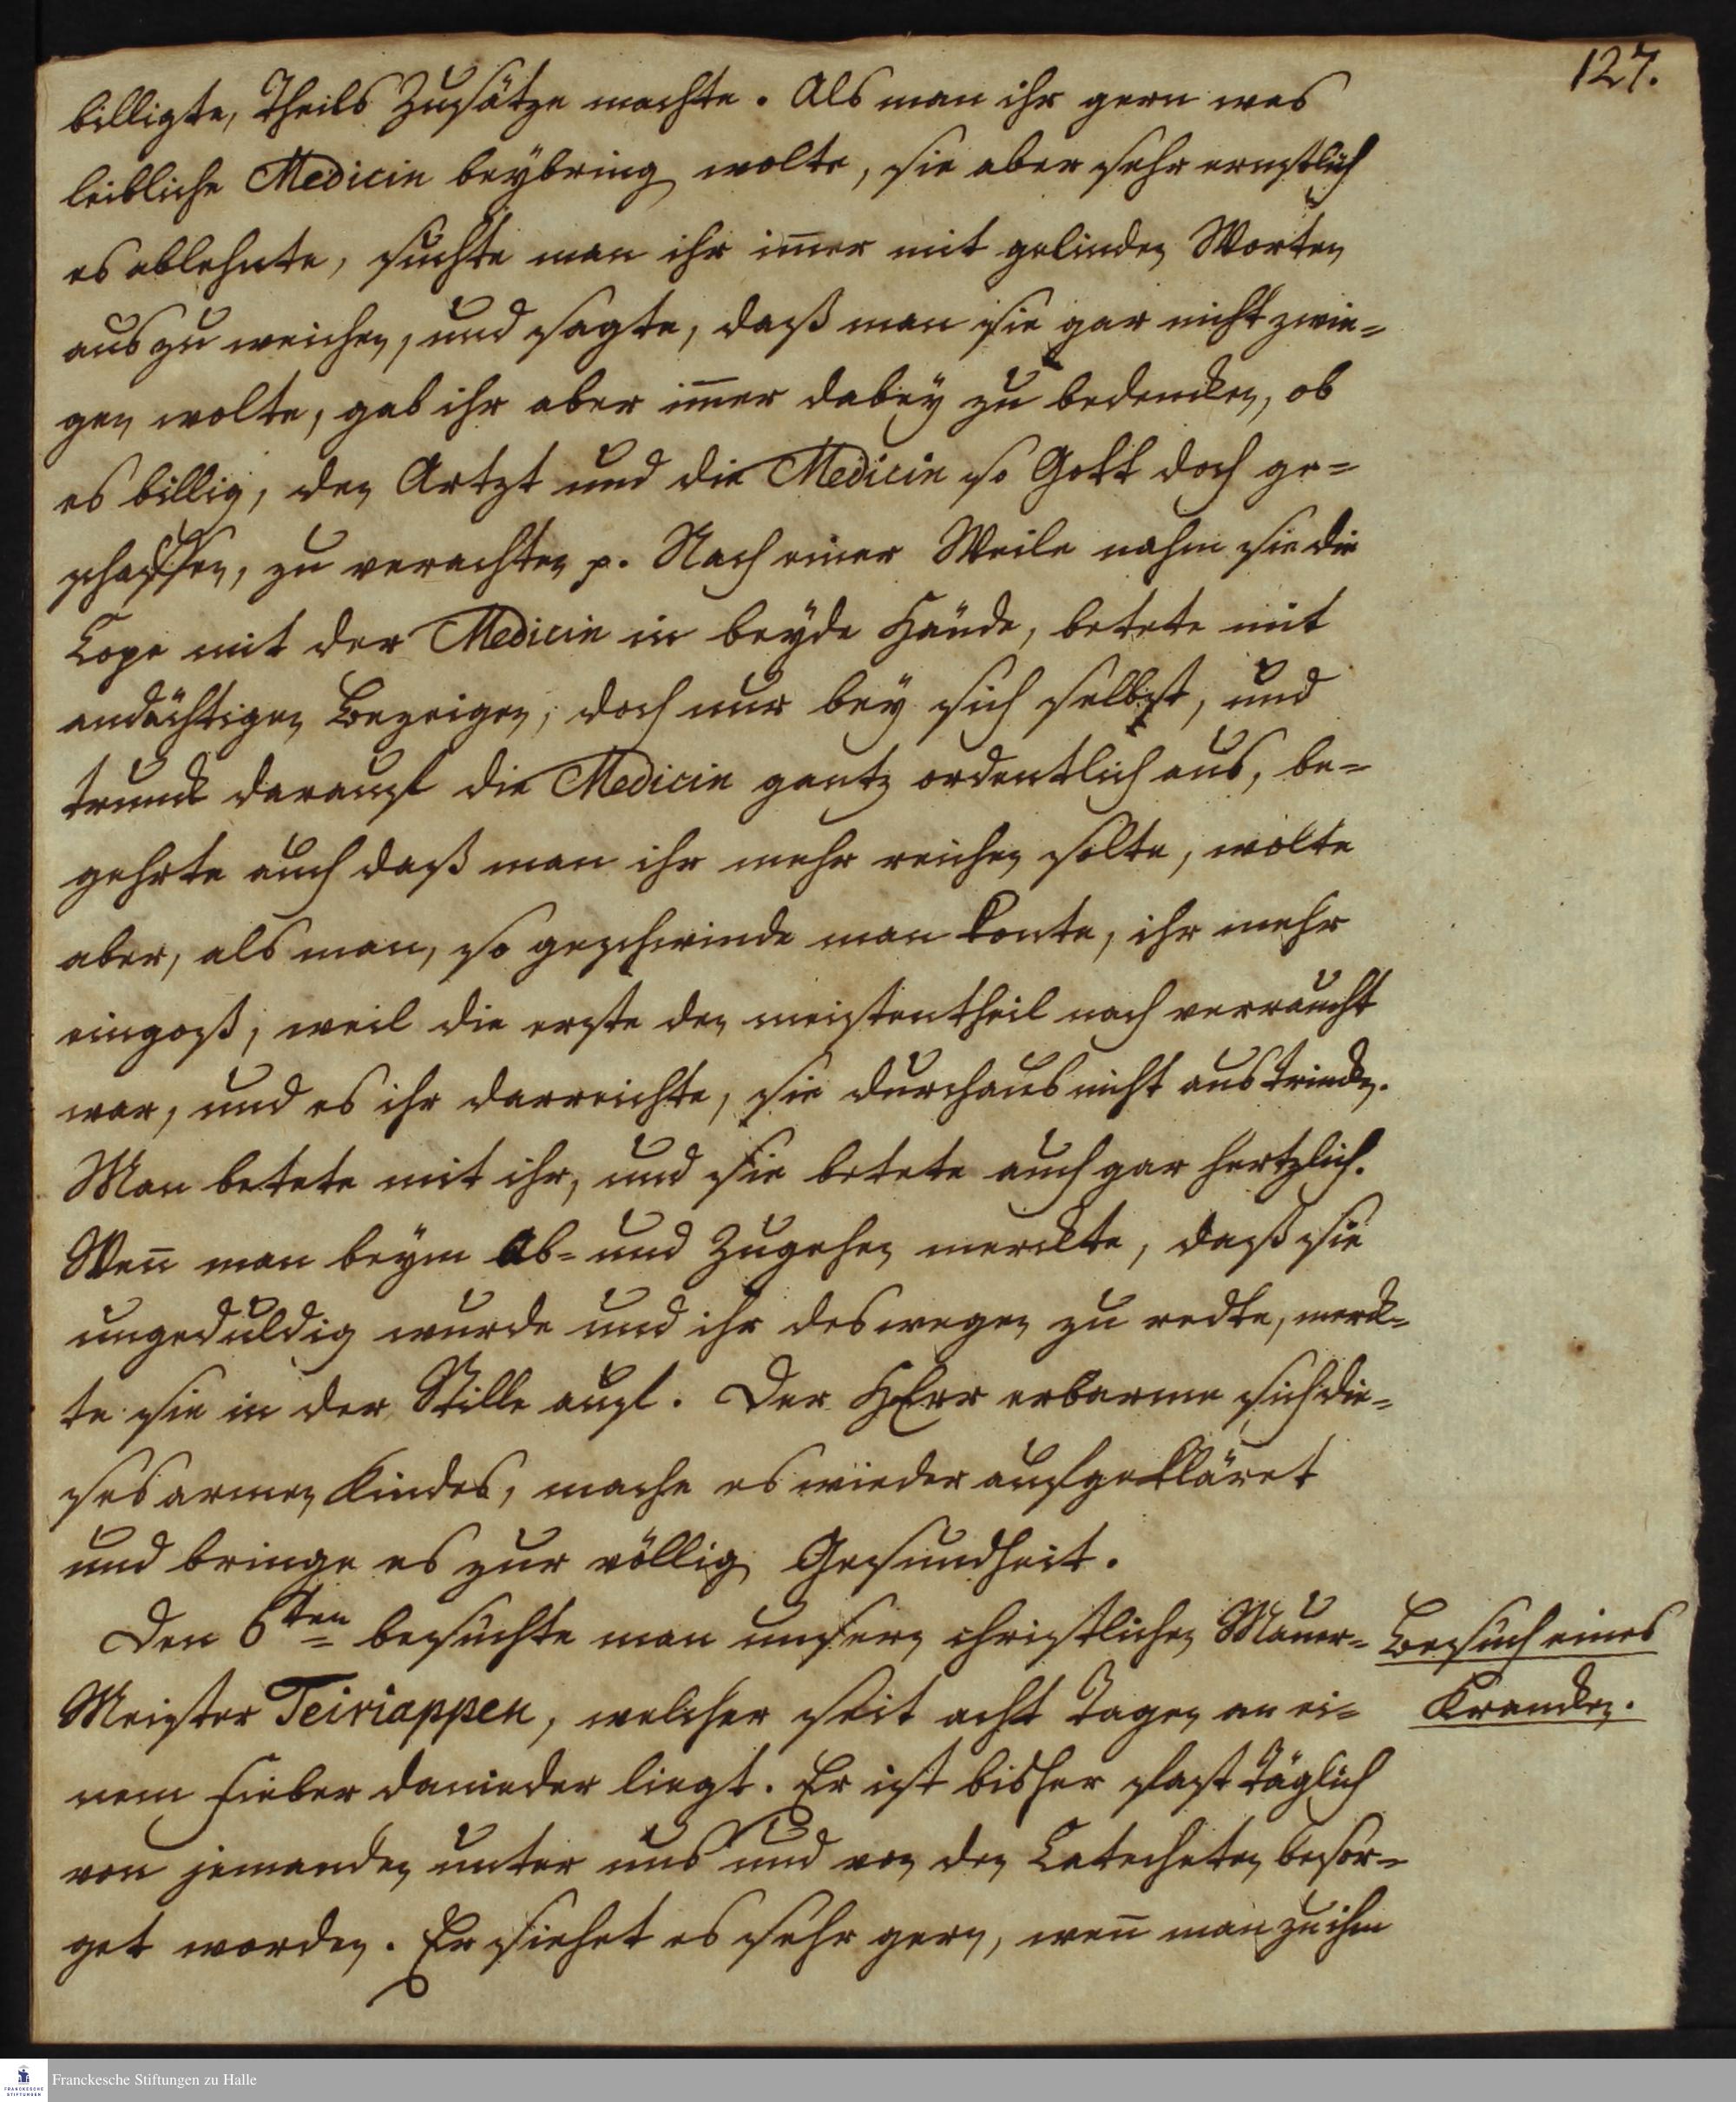 127.
billigte, Theils Zusätze machte. Als man ihr gern was
leibliche Medicin beybring wolte, sie aber sehr ernstlich
es ablehnte, suchte man ihr im̅er mit gelinden Worten
auszuweichen, und sagte, daß man sie gar nicht zwin-
gen wolte, gab ihr aber im̅er dabey zu bedencken, ob
es billig, den Artzt und die Medicin so Gott doch ge-
schaffen, zu verachten p. Nach einer Weile nahm sie die
Copc mit der Medicin in beyde Hände, betete mit
andächtigen Bezeigen, doch nur bey sich selbst, und
trunck darauf die Medicin gantz ordentlich aus, be-
gehrte auch daß man ihr mehr reichen solte, wolte
aber, als man, so geschwinde man konte, ihr mehr
eingoß, weil die erste den meistentheil nach verraucht
war, und es ihr darreichte, sie durchaus nicht austrincken.
Man betete mit ihr, und sie betete auch gar hertzlich.
Wen̅ man beym Ab- und Zugehen merckte, daß sie
ungeduldig wurde und ihr deswegen zu redte, merck-
te sie in der Stille auf. Der HErr erbarme sich die-
ses armen Kindes, mache es wieder aufgekläret
und bringe es zur völlig Gesundheit.
Den 6ten besuchte man unsern christlichen Mauer-
Meister Teiriappen, welcher seit acht Tagen an ei-
nem Fieber danieder liegt. Er ist bisher fast täglich
von jemanden unter uns und von den Catecheten besor-
get worden. Er siehet es sehr gern, wen̅ man zu ihm
Besuch eines
Krancken.
Franckesche Stiftungen zu Halle